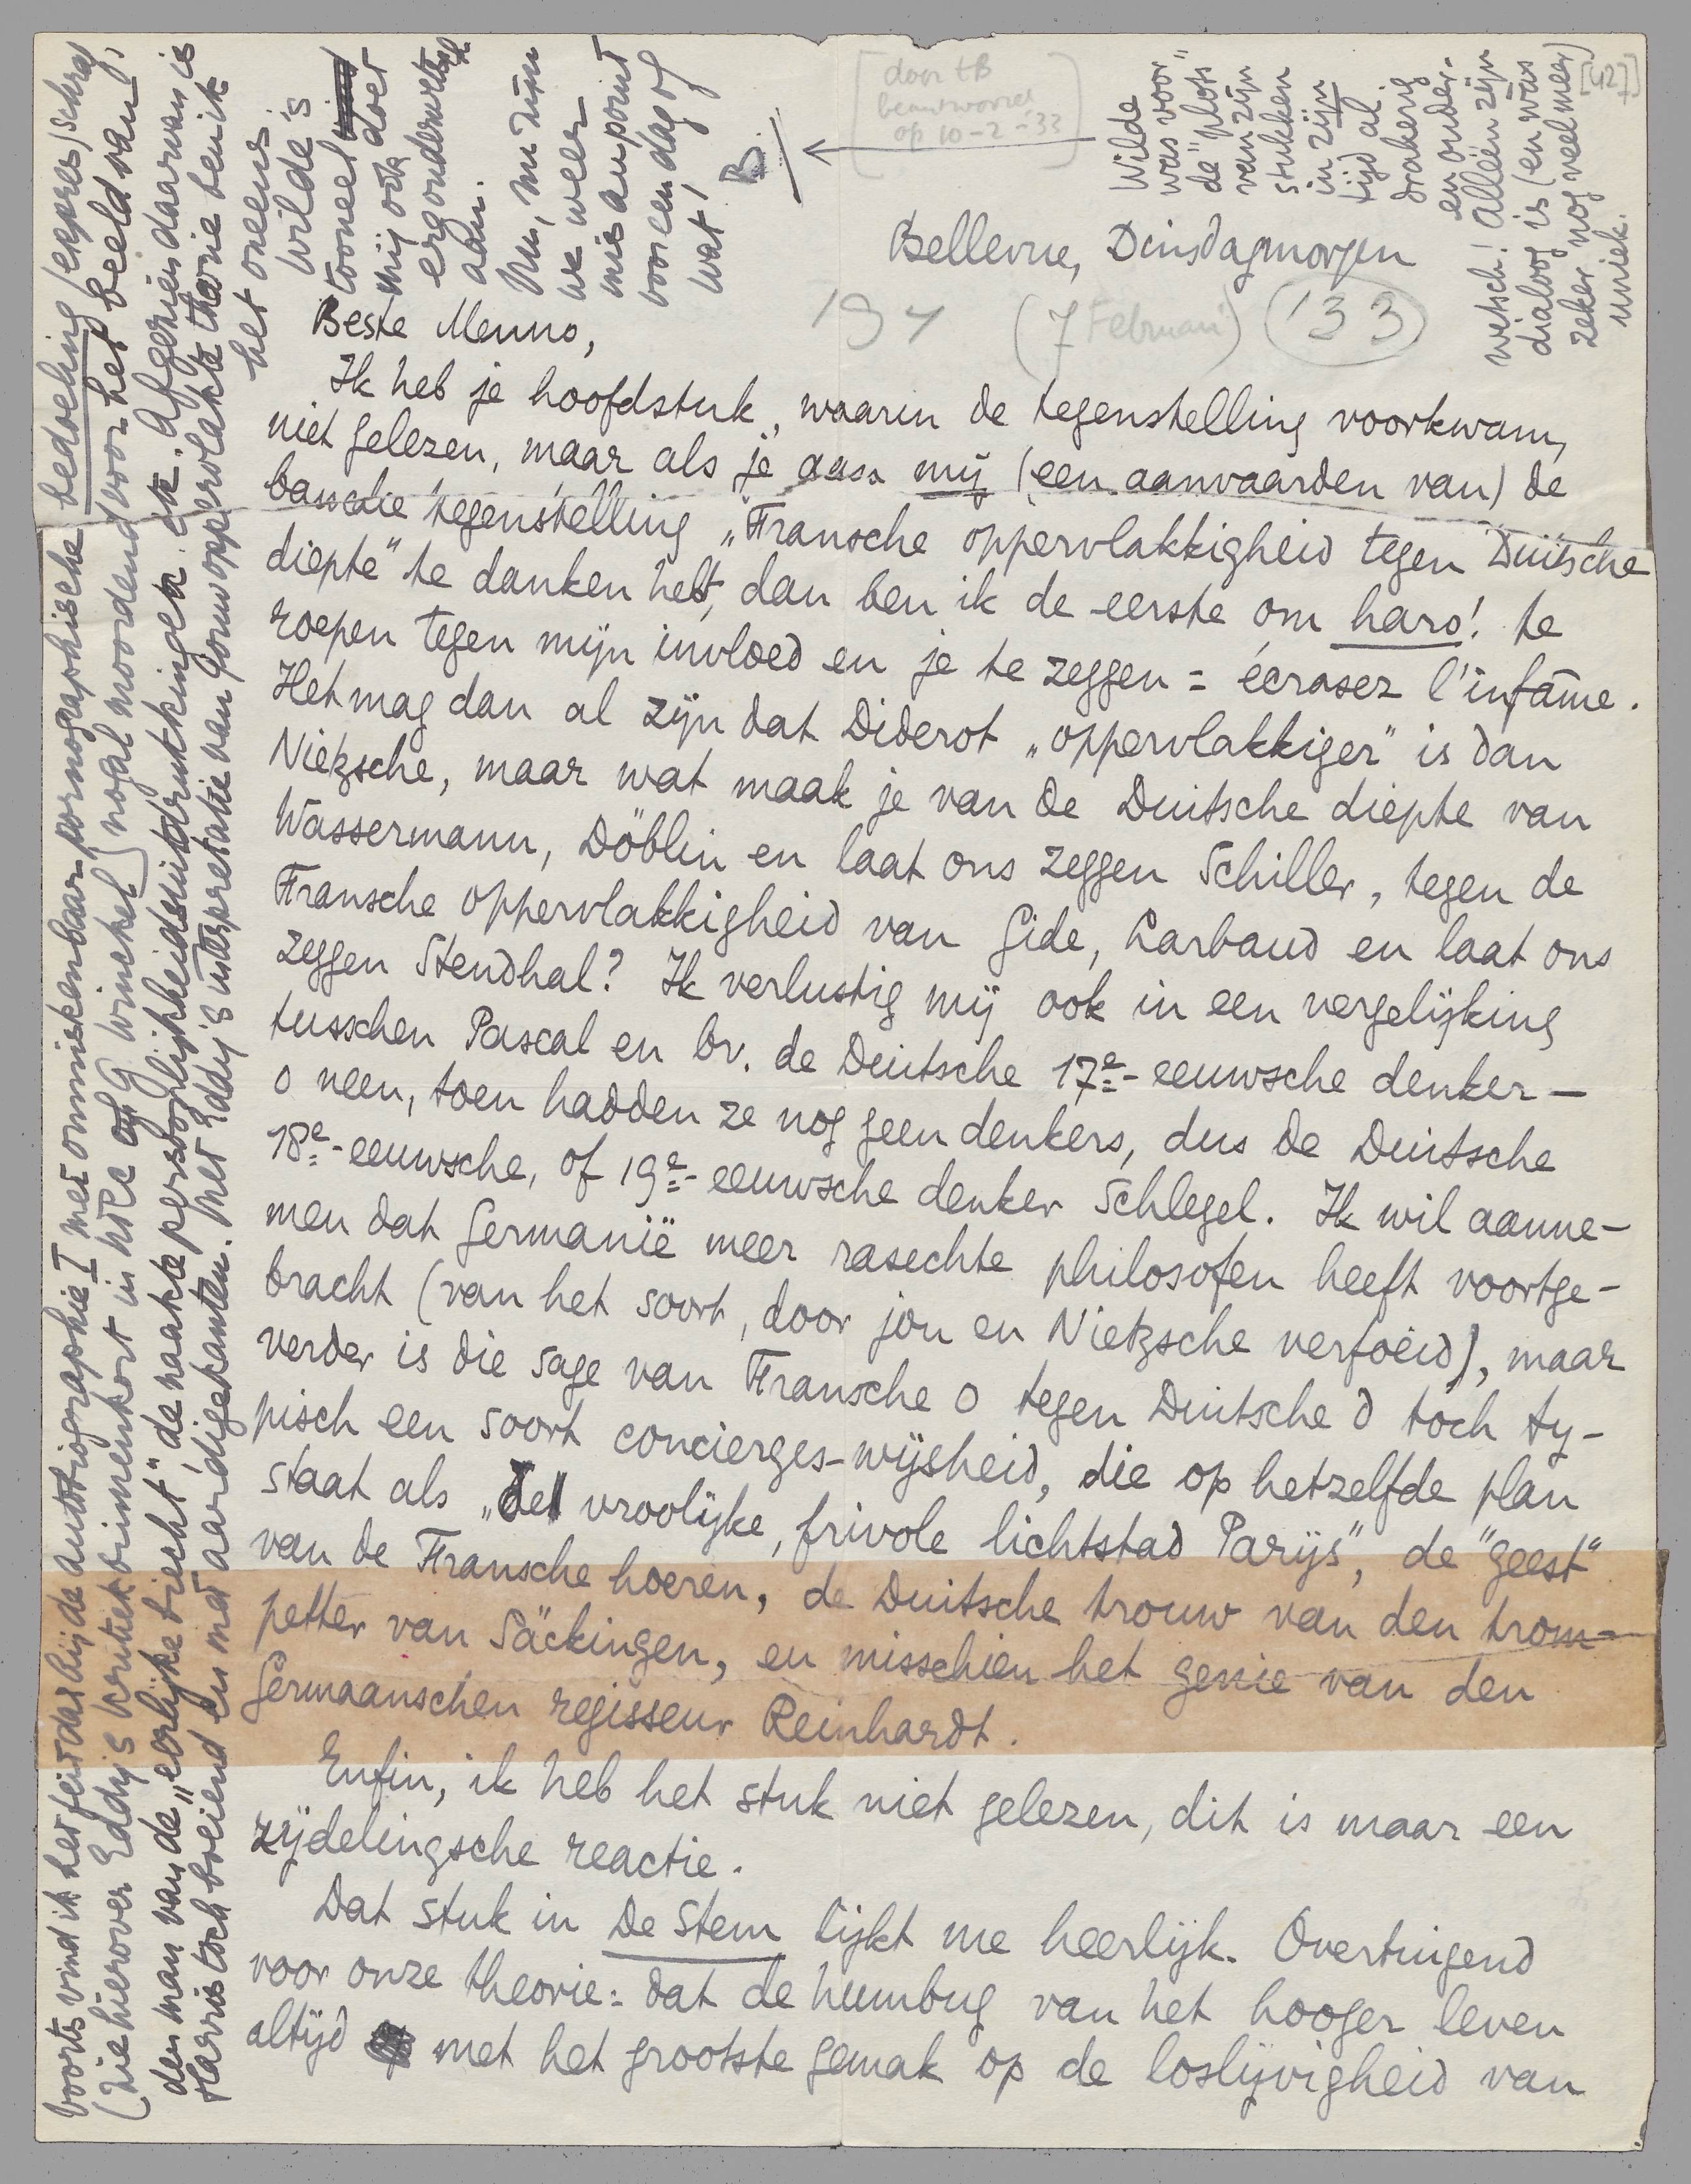 [door tB
beantwoord
op 10-2-'33]
[42]
Bellevue, Dinsdagmorgen
194 (7 Februari) ('33)
Beste Menno,
Ik heb je hoofdstuk, waarin de tegenstelling voorkwam,
niet gelezen, maar als je aan mij (een aanvaarden van) de
banale tegenstelling „Fransche oppervlakkigheid tegen Duitsche
diepte" te danken hebt, dan ben ik de eerste om haro! te
roepen tegen mijn invloed en je te zeggen: écrasez l'infâme.
Het mag dan al zijn dat Diderot „oppervlakkiger" is dan
Nietzsche, maar wat maak je van de Duitsche diepte van
Wassermann, Döblin en laat ons zeggen Schiller, tegen de
Fransche oppervlakkigheid van Gide, Larbaud en laat ons
zeggen Stendhal? Ik verlustig mij ook in een vergelijking
tusschen Pascal en bv. de Duitsche 17e-eeuwsche denker —
o neen, toen hadden ze nog geen denkers, dus de Duitsche
18e-eeuwsche, of 19e-eeuwsche denker Schlegel. Ik wil aanne-
men dat Germanië meer rasechte philosofen heeft voortge-
bracht (van het soort, door jou en Nietzsche verfoeid), maar
verder is die sage van Fransche o tegen Duitsche d toch ty-
pisch een soort concierges-wijsheid, die op hetzelfde plan
staat als „de vroolijke, frivole lichtstad Parijs", de "geest"
van de Fransche hoeren, de Duitsche trouw van den trom-
petter van Säckingen, en misschien het genie van den
Germaanschen regisseur Reinhardt.
Enfin, ik heb het stuk niet gelezen, dit is maar een
zijdelingsche reactie.
Dat stuk in De Stem lijkt me heerlijk. Overtuigend
voor onze theorie: dat de humbug van het hooger leven
altijd met het grootste gemak op de loslijvigheid van
voorts vind ik het feit dat hij de autobiographie I met onmiskenbaar pornographische bedoeling (expres) schreef
(zie hierover Eddy's kritiek binnenkort in hólè of G. Winckel) nogal moordend voor het beeld van
den man van de „eerlijke biecht", de naakte persoonlijkheidsuitdrukking etc. etc. Afgezien daarvan is
Harris toch boeiend en met aardige kanten. Met Eddy's interpretatie van jouw oppervlakte-theorie ben ik
het oneens.
Wilde's
tooneel doet
mij ook
erg ouderwetsch
aan.
Nu, nu zijn
we weer
mis au point
voor een dag of
wat!
B.
Wilde
was voor
de "plots"
van zijn
stukken
in zijn
tijd al
drakerig
en ouder-
wetsch! Alléén zijn
dialoog is (en was
zeker nog veel meer)
uniek.